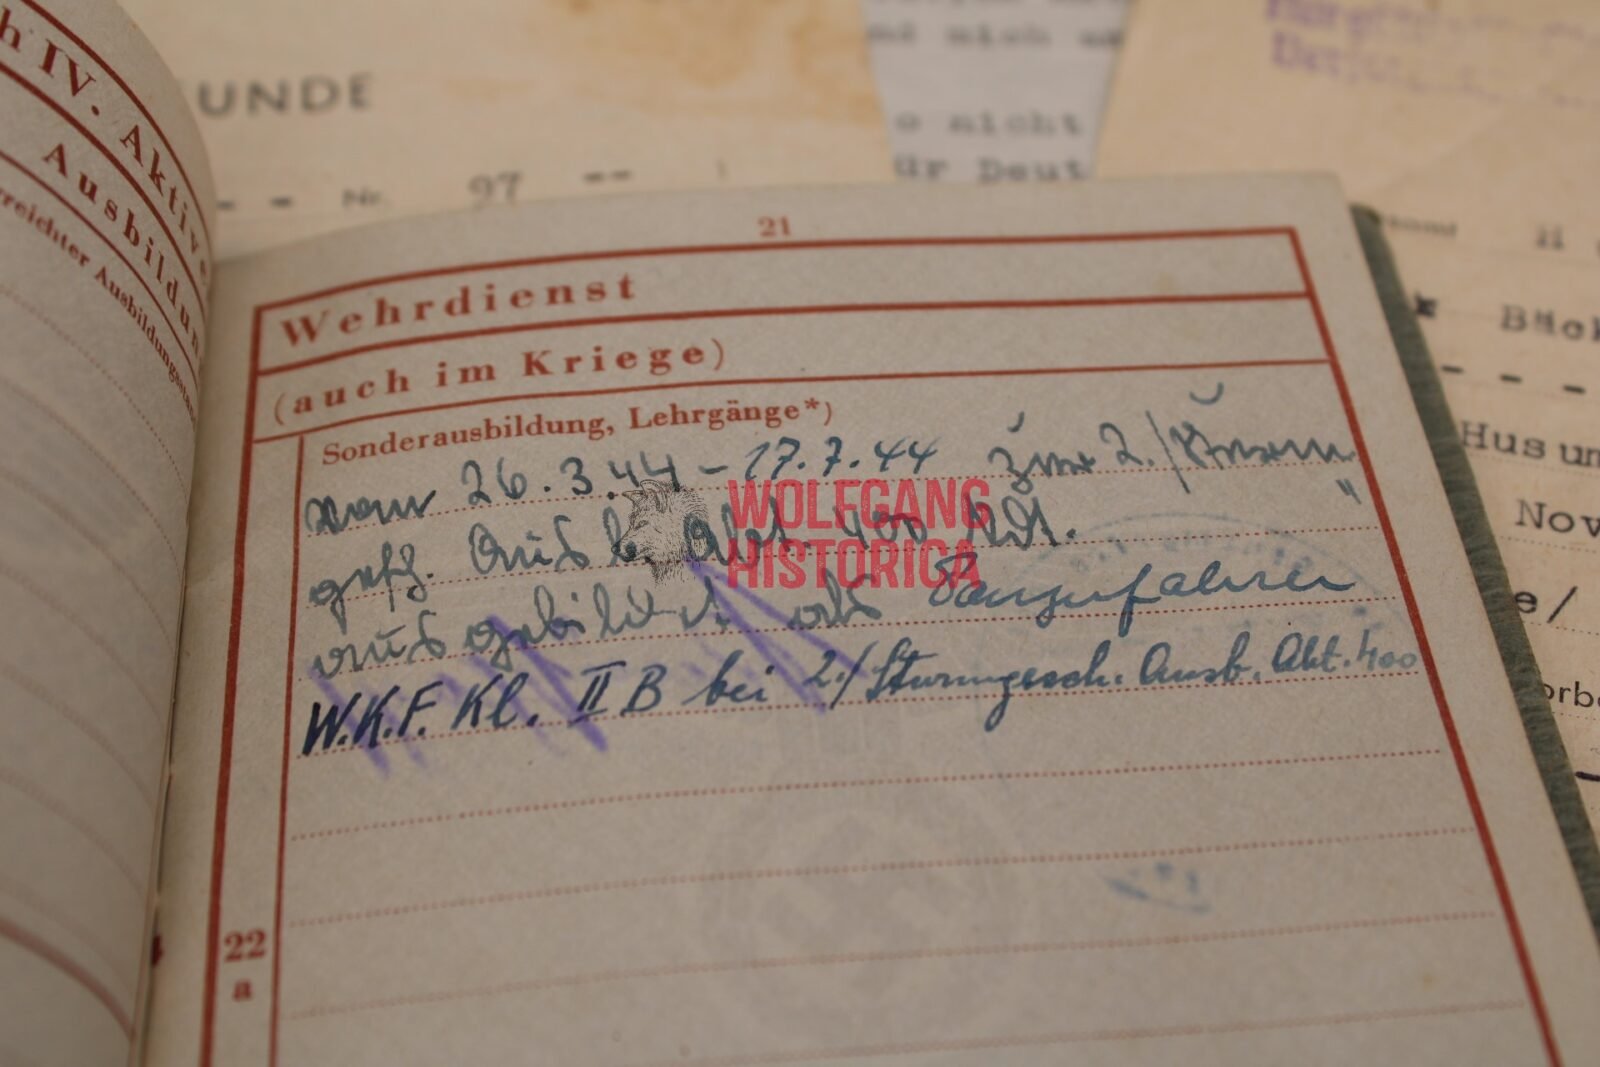 h IV. Aktive
Ausbildun
rreichter Ausbildungsstan
UNDE
Nr. 97 --
nd mich
o nicht
ür Deut
21
Wehrdienst
(auch im Kriege)
Sonderausbildung, Lehrgänge*)
vom 26.3.44 – 17.7.44 zur 2./Sturm
gesch. Ausb. Abt. 400
ausgebildet als Panzerfahrer
W.K.F. Kl. II B bei 2./Sturmgesch. Ausb. Abt. 400
22
a
WOLFGANG
HISTORICA
Bäck
Husum
Nov
e/
orbe